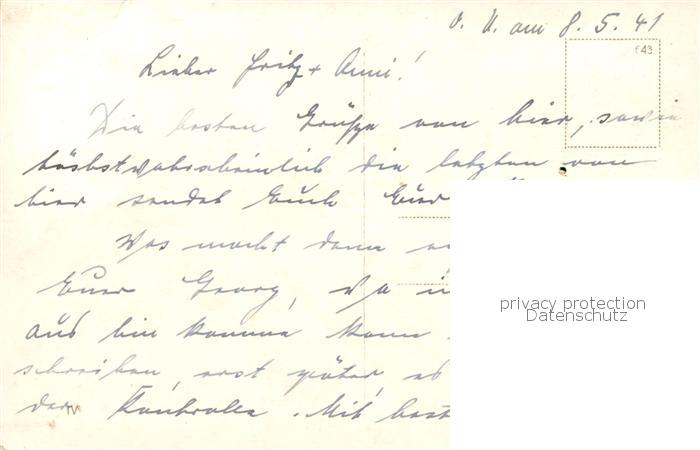 O. U. am 8. 5. 41
643
Lieber Fritz + Anni!
Die besten Grüße von hier, sowie
höchstwahrscheinlich die letzten von
hier sendet Euch Euer
Was macht denn
Euer Georg, wo
aus bin komme kann
schreiben, erst später, ob
der Kontrolle. Mit best
privacy protection
Datenschutz